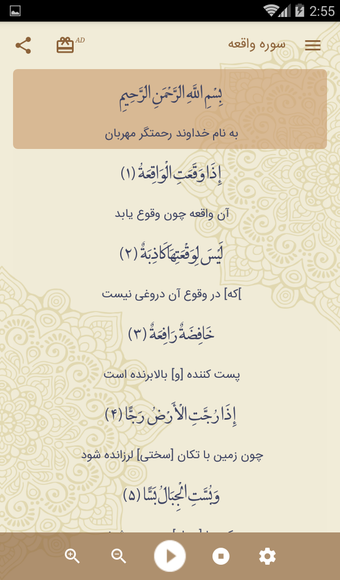 2:55
سوره واقعه
AD
بِسْمِ اللَّهِ الرَّحْمَنِ الرَّحِيمِ
به نام خداوند رحمتگر مهربان
إِذَا وَقَعَتِ الْوَاقِعَةُ (۱)
آن واقعه چون وقوع یابد
لَيْسَ لِوَقْعَتِهَا كَاذِبَةٌ (۲)
]که] در وقوع آن دروغی نیست
خَافِضَةٌ رَافِعَةٌ (۳)
پست کننده [و] بالابرنده است
إِذَا رُجَّتِ الْأَرْضُ رَجًّا (۴)
چون زمین با تکان [سختی] لرزانده شود
وَبُسَّتِ الْجِبَالُ بَسًّا (۵)